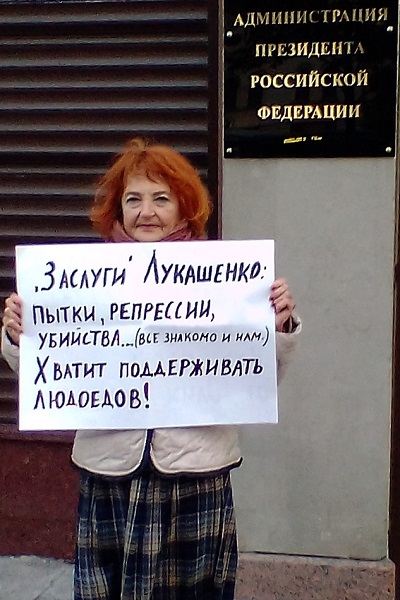 АДМИНИСТРАЦИЯ
ПРЕЗИДЕНТА
РОССИЙСКОЙ
ФЕДЕРАЦИИ
"ЗАСЛУГИ" ЛУКАШЕНКО:
ПЫТКИ, РЕПРЕССИИ,
УБИЙСТВА... (ВСЕ ЗНАКОМО И НАМ.)
ХВАТИТ ПОДДЕРЖИВАТЬ
ЛЮДОЕДОВ!